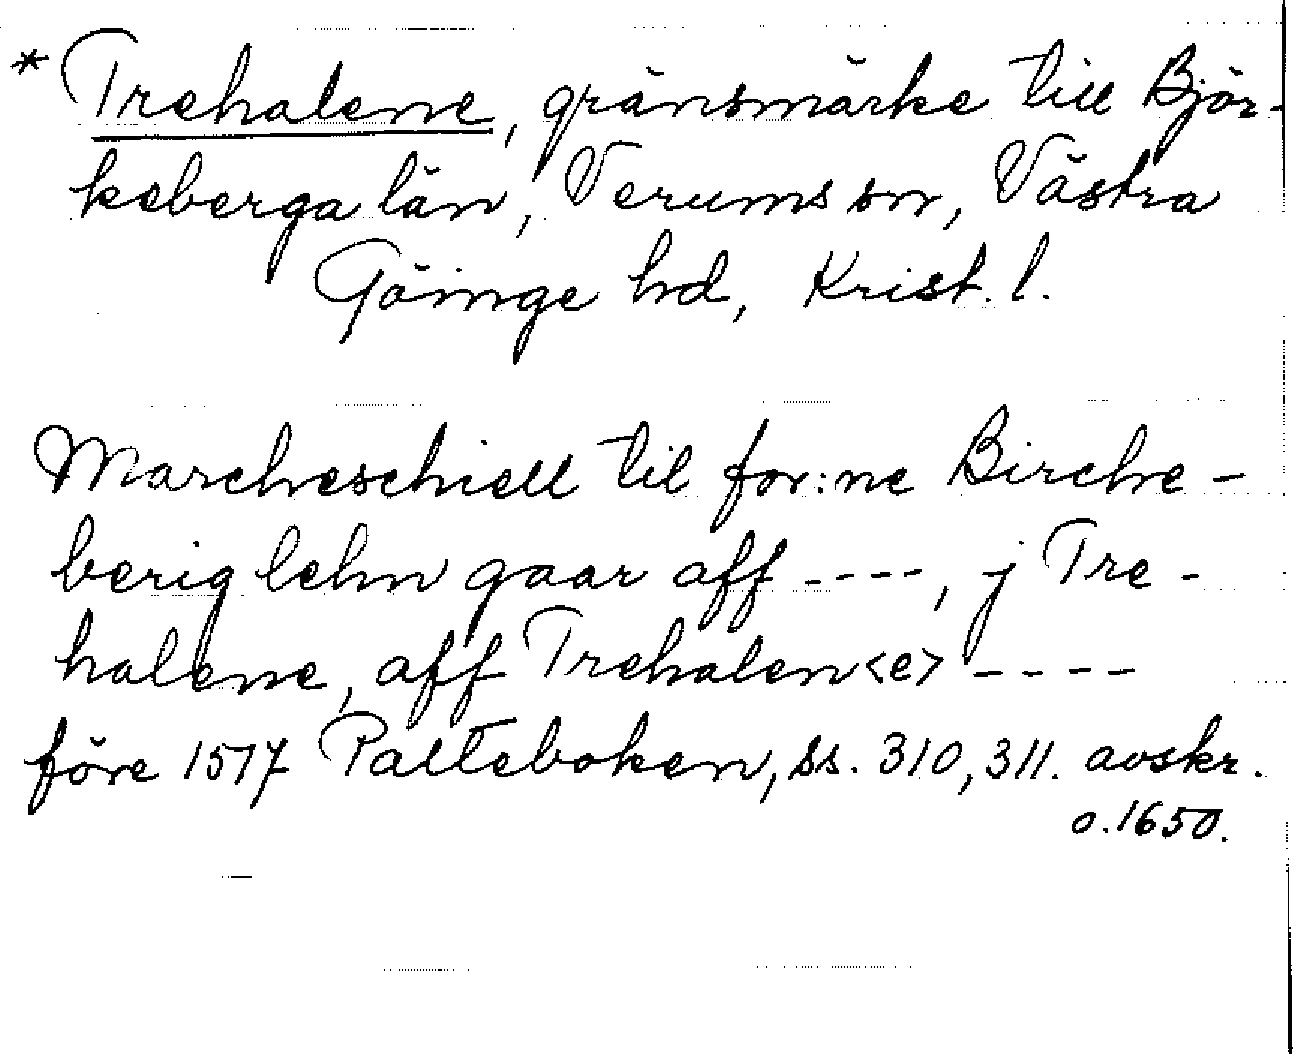 * Trehalene, gränsmärke till Björ-
keberga län, Verums sn, Västra
Göinge hd, Krist. l.
Marcheschiell til for:ne Birche-
berig lehn gaar aff ----, j Tre-
halene, aff Trehalen<e> ----
före 1517 Palteboken, ss. 310, 311. avskr.
o. 1650.